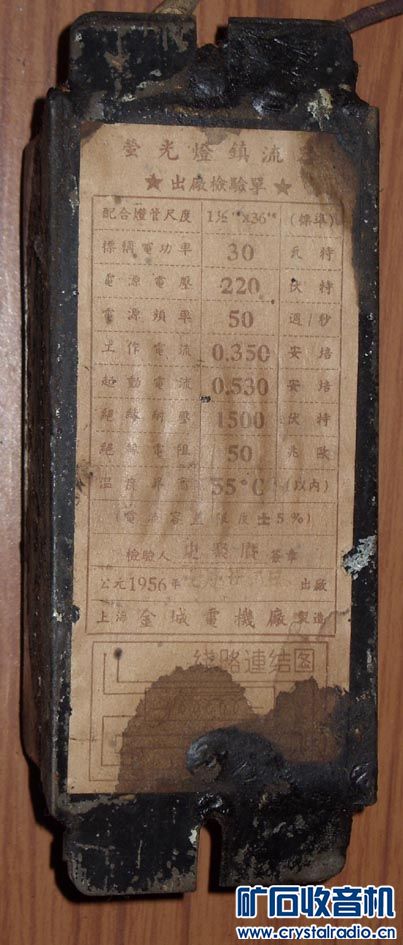 螢光燈鎮流
★出廠檢驗單★
配合燈管尺度 1½"x36" (標準)
標稱電功率 30 瓦特
電源電壓 220 伏特
電源頻率 50 週/秒
工作電流 0.350 安培
起動電流 0.530 安培
絕緣耐壓 1500 伏特
絕緣電阻 50 兆歐
溫度昇高 55°C (以內)
(電流容差限度±5%)
檢驗人 簽章
公元1956年 出廠
上海 金城電機廠 製造
线路連結图
矿石收音机
www.crystalradio.cn